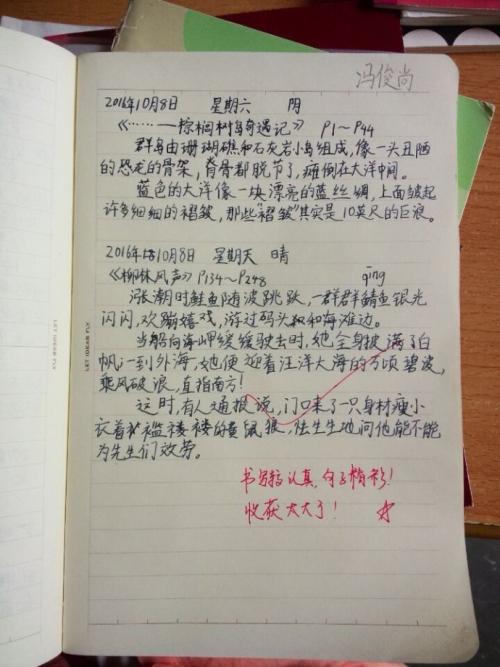 冯俊尚
2016年10月8日 星期六 阴
《……——棕榈树岛奇遇记》 P1~P44
群岛由珊瑚礁和石灰岩小岛组成,像一头丑陋
的恐龙的骨架,脊骨都脱节了,瘫倒在大洋中间。
蓝色的大洋像一块漂亮的蓝丝绸,上面皱起
许多细细的褶皱,那些"褶皱"其实是10英尺的巨浪。
2016年10月8日 星期天 晴
《柳林风声》P134~P248 qīng
涨潮时鲑鱼随波跳跃,一群群鲭鱼银光
闪闪,欢蹦嬉戏,游过码头和海滩边。
当船向海岬缓缓驶去时,她全身披满了白
帆,一到外海,她便迎着汪洋大海的万顷碧波,
乘风破浪,直指南方!
这时,有人通报说,门口来了一只身材瘦小
衣着褴褛的黄鼠狼,怯生生地问他能不能
为先生们效劳。
书写认真,句子精彩!
收获太大了!
LET IDEAS FLY